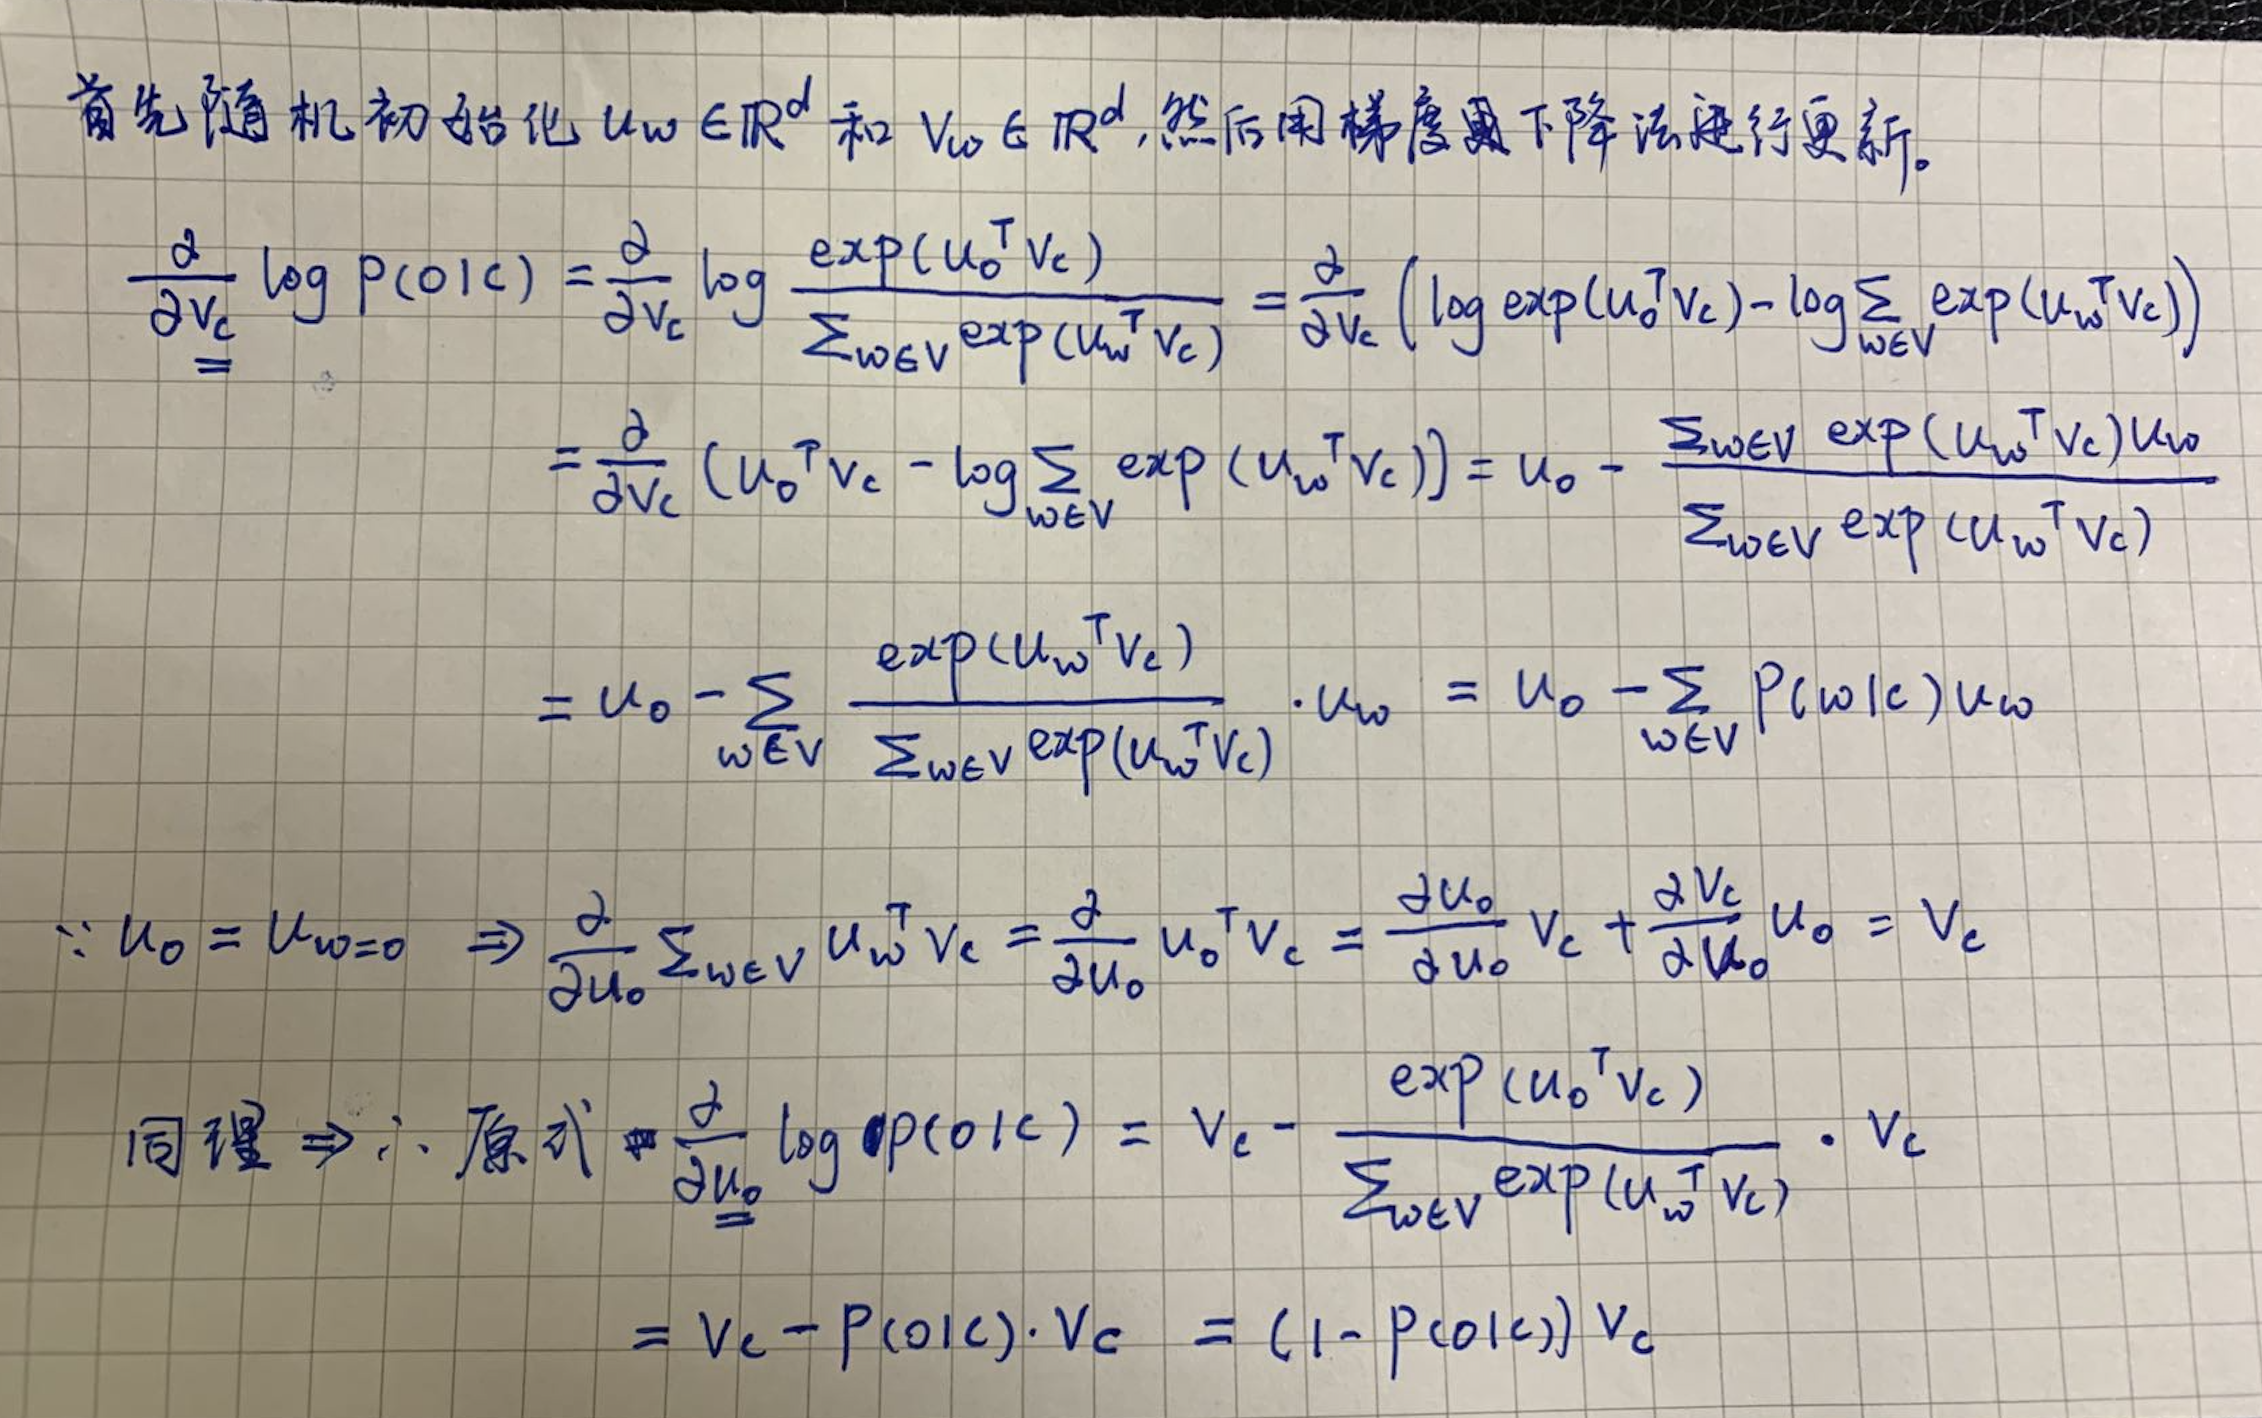 首先随机初始化 u_w ∈ ℝ^d 和 V_w ∈ ℝ^d ,然后用梯度下降法进行更新。
∂/∂V_c log P(o|c) = ∂/∂V_c log exp(u_o^T V_c) / Σ_{w∈V} exp(u_w^T V_c) = ∂/∂V_c (log exp(u_o^T V_c) - log Σ_{w∈V} exp(u_w^T V_c))
= ∂/∂V_c (u_o^T V_c - log Σ_{w∈V} exp(u_w^T V_c)) = u_o - Σ_{w∈V} exp(u_w^T V_c) u_w / Σ_{w∈V} exp(u_w^T V_c)
= u_o - Σ_{w∈V} exp(u_w^T V_c) / Σ_{w∈V} exp(u_w^T V_c) · u_w = u_o - Σ_{w∈V} P(w|c) u_w
∵ u_o = u_{w=o} ⇒ ∂/∂u_o Σ_{w∈V} u_w^T V_c = ∂/∂u_o u_o^T V_c = ∂u_o/∂u_o V_c + ∂V_c/∂u_o u_o = V_c
同理 ⇒ ∴ 原式 = ∂/∂u_o log p(o|c) = V_c - exp(u_o^T V_c) / Σ_{w∈V} exp(u_w^T V_c) · V_c
= V_c - P(o|c) · V_c = (1 - P(o|c)) V_c